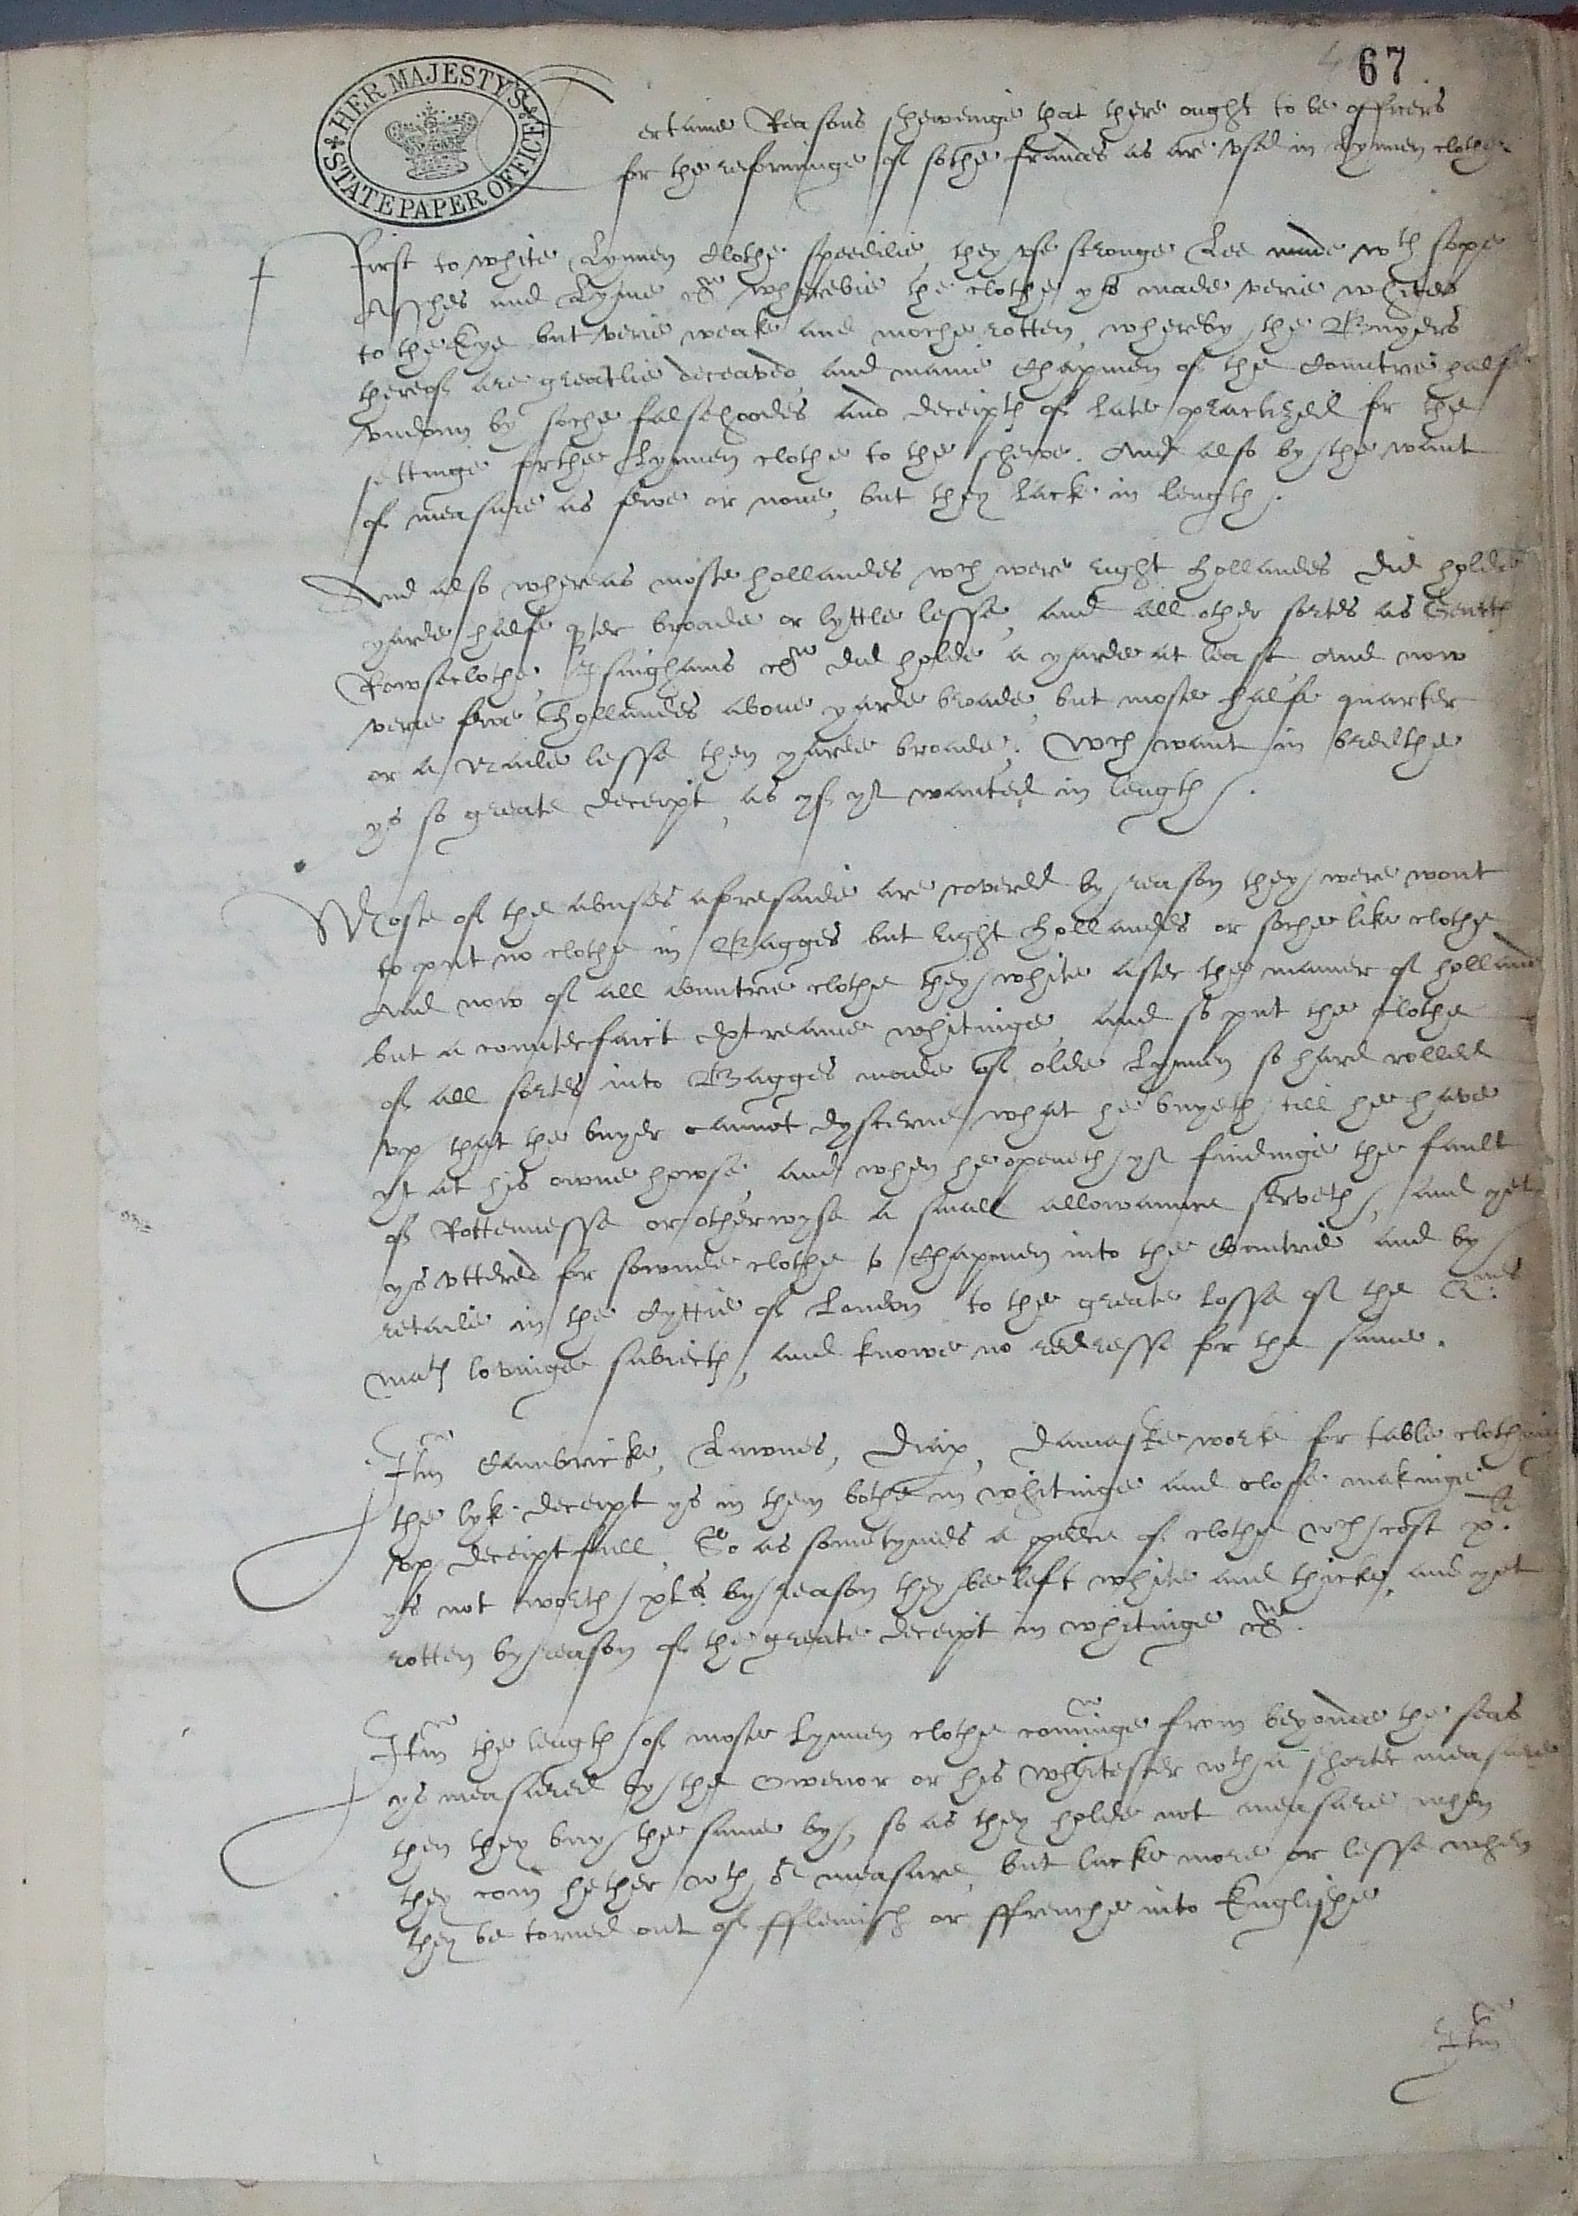 67
HER MAJESTY'S STATE PAPER OFFICE
Certaine Reasons shewenge that there ought to be officers
for the reforminge of soche fraudes as are vsed in Lynnen clothe
First to white Lynnen Clothe speedilie they vse stronge Lee made wth sope
Asshes and Lyme &c wherebie the clothe ys made verie white
to the Eye but verie weake and moche rotten, whereby the Buyers
thereof are greatlie deceaved and manie Chapmen of the Countrie halfe
vndonn by soche falsehoodes and deceipts of late practized for the
settinge forthe Lynnen clothe to the shewe. And also by the want
of measure as fewe or none, but they lack in length.
And also whereas moste hollandes wch were right hollandes did holde
yarde halfe qter broade or lyttle lesse, and all other sortes as
Rowseclothe, Isinghams &c did holde a yarde at least And now
verie fewe Hollandes aboue yarde broade, but moste halfe quarter
or a Naile lesse then yarde broade. Wch want in bredthe
ys so greate deceipt, as yf yt wanted in length.
Moste of the abuses aforesaide are covered by reason they were wont
to put no clothe in Bagges but right Hollandes or soche like clothe
And now of all Countrie clothe they white after the manner of holland
but a counterfaict extreame whitinge, and so put the clothe
of all sortes into Bagges made of olde Lynnen so hard rolled
vp that the buyer cannot dyscerne what he buyeth till he have
yt at his owne howse, and when he openeth yt findinge the fault
of Rottennesse or otherwyse a small allowaunce serveth, and yet
ys vttered for sownde clothe to Chapmen into the Countrie and by
retaile in the Cyttie of London to the greate losse of the Q:nes
mats lovinge subiects, and knowe no redresse for the same.
Itm Cambricke, Lawnes, Diap, Damaske work for table clothes
the lyk deceipt ys in them bothe in whitinge and close makinge
vp deceiptfull. So as sometymes a peece of clothe wch cost xli
ys not worth xls by reason they be left white and thicke, and yet
rotten by reason of the greate deceipt in whitinge &c.
Itm the length of moste Lynnen clothe cominge from beyonde the seas
ys measured by the Owenor or his whitester wth a shorter measure
then they buy the same by, so as they holde not measure when
they com hether wth or measure, but lacke more or lesse when
they be torned out of fflemish or ffrenche into Englishe
Itm